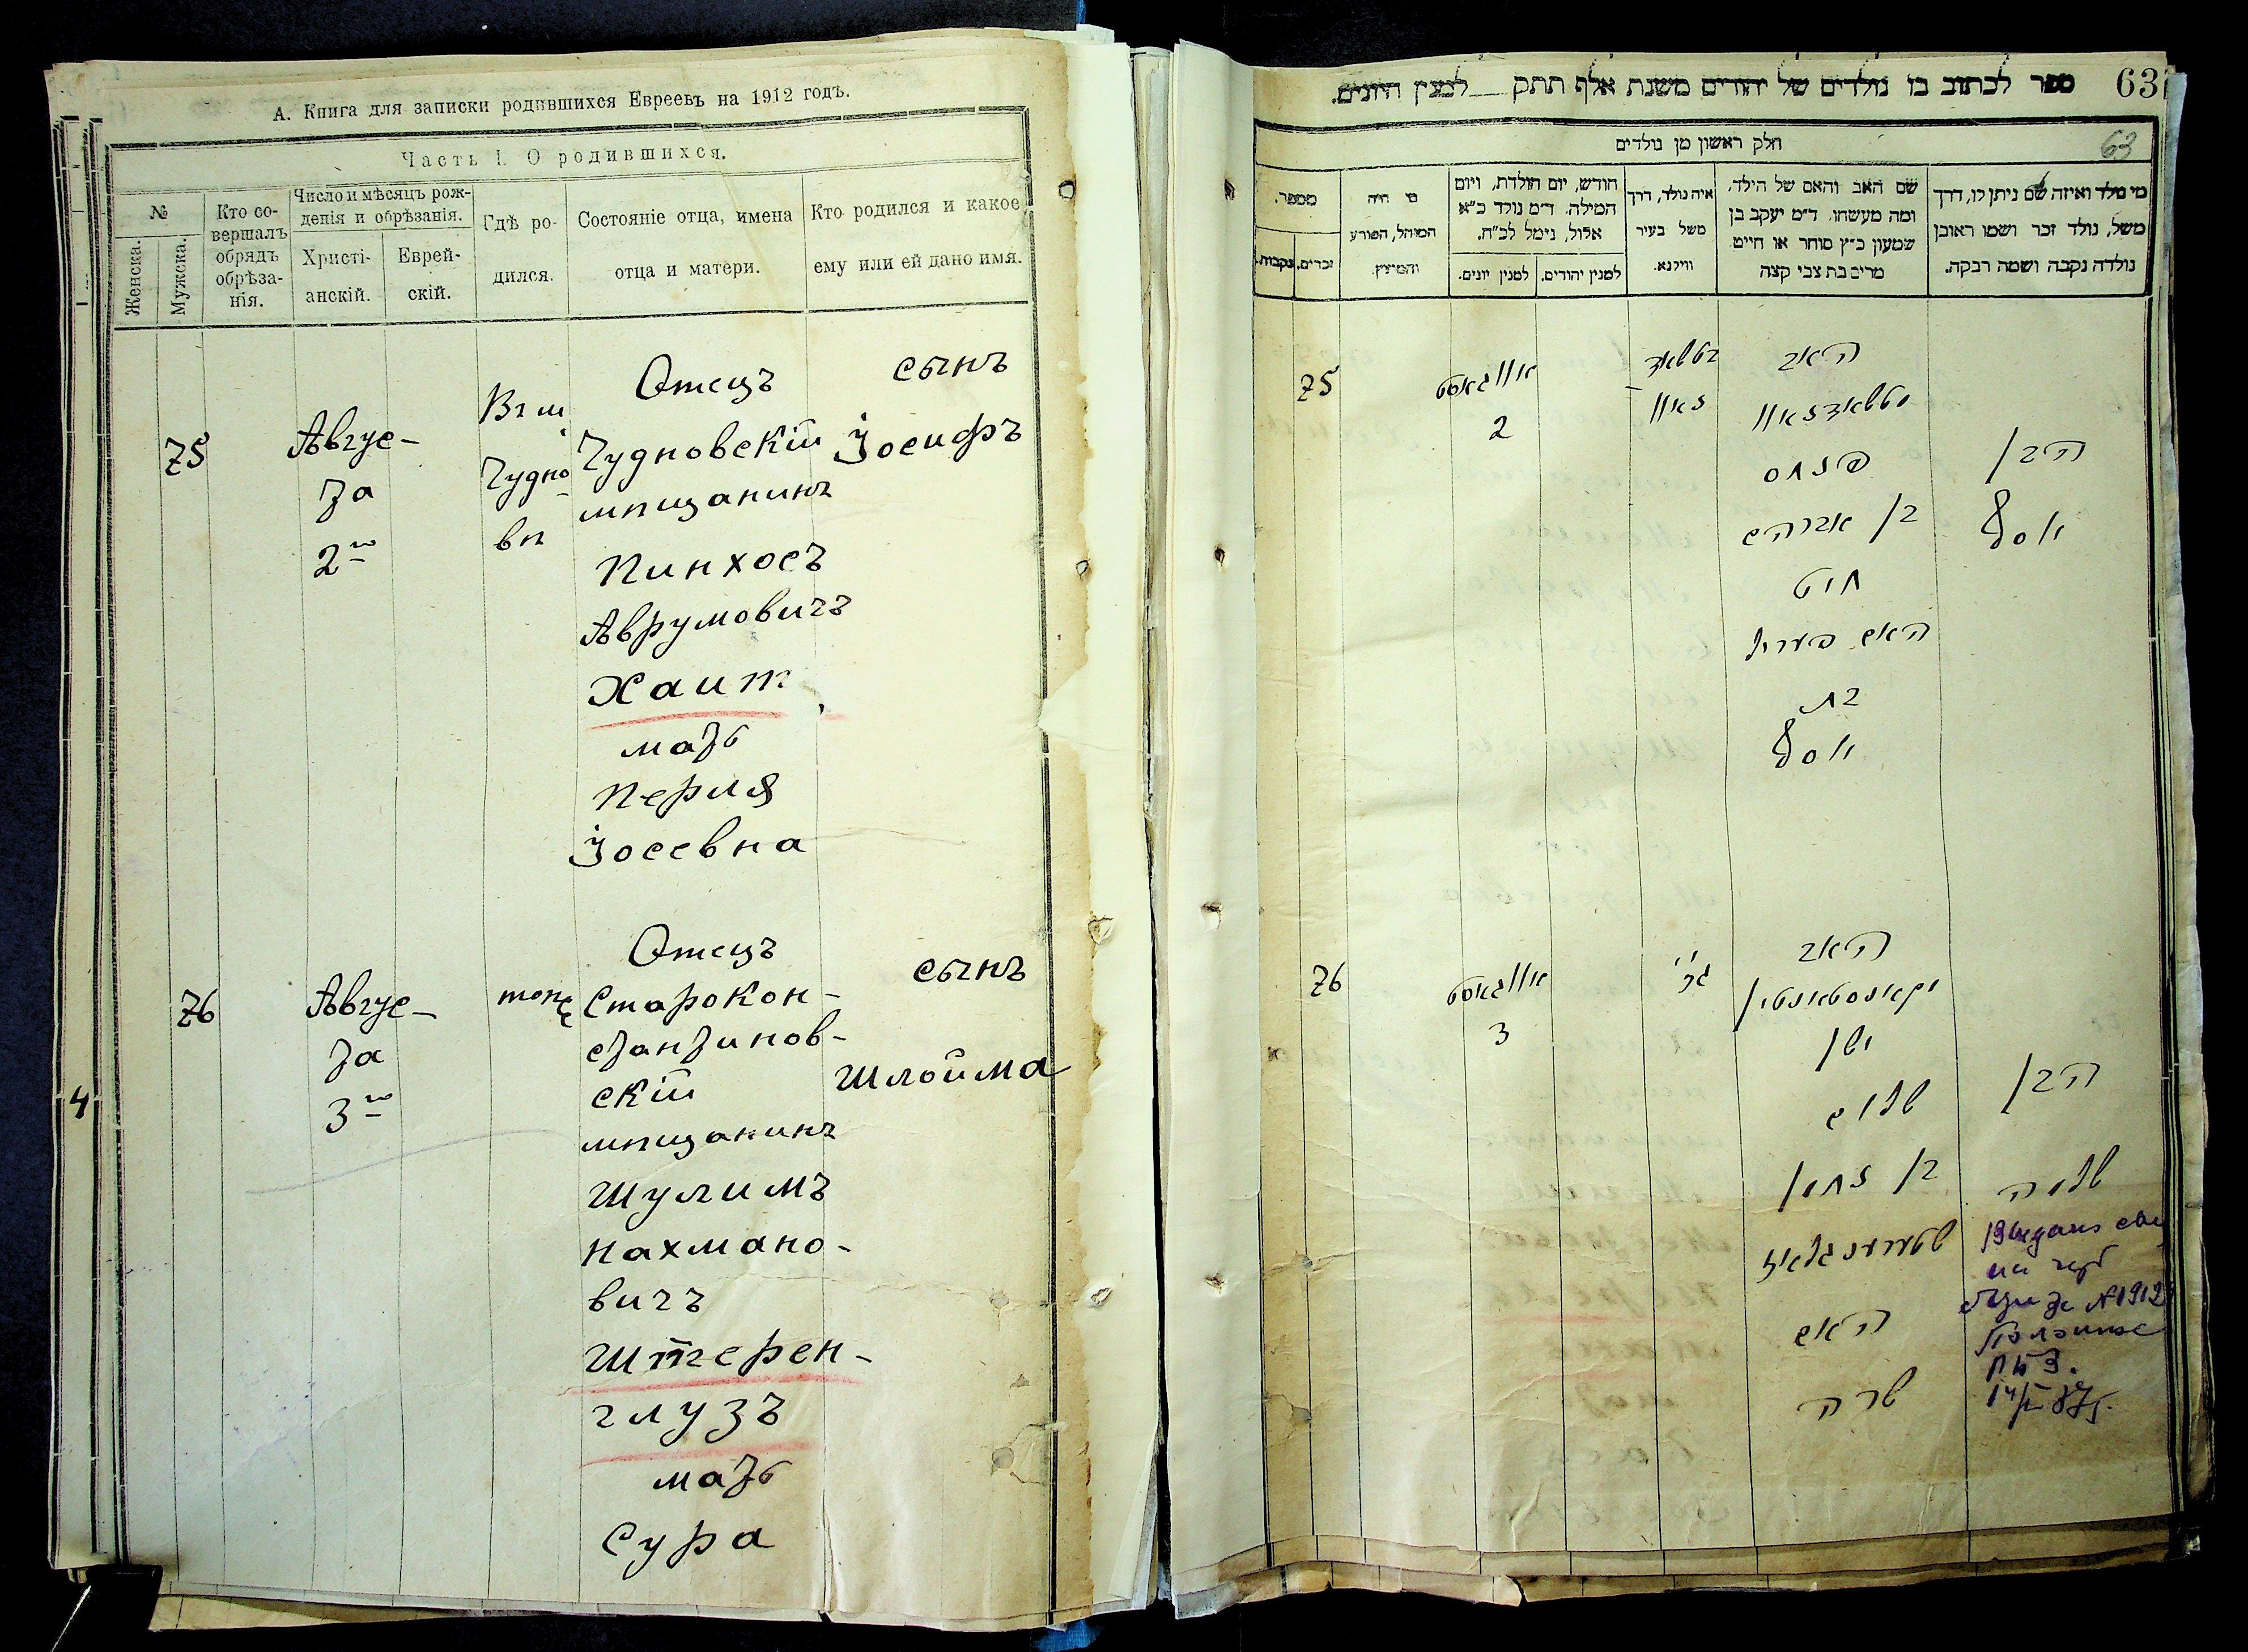 А. Книга для записки родившихся Евреевъ на 1912 годъ.
Часть I. О родившихся.
№
Женска.
Мужска.
Кто со-
вершалъ
обрядъ
обрѣза-
нія.
Число и мѣсяцъ рож-
денія и обрѣзанія.
Христі-
анскій.
Еврей-
скій.
Гдѣ ро-
дился.
Состояніе отца, имена
отца и матери.
Кто родился и какое
ему или ей дано имя.
75
Авгус-
та
2го
Чудно
вѣ
Отецъ
Чудновскій
мѣщанинъ
Пинхосъ
Аврумовичъ
Хаит
мать
Перля
Іосевна
сынъ
Іосифъ
76
Авгус-
та
3го
тоже
Отецъ
Старокон-
стантинов-
скій
мѣщанинъ
Шулимъ
Нахмано-
вичъ
Штерен-
глузъ
мать
Сура
сынъ
Шлойма
4
ספר לכתוב בו נולדים של יהודים משנת אלף תתק לפנין היונים.
63
חלק ראשון מן נולדים
63
מספר.
נקבות.
זכרים.
מי היה
המוהל, הפורע
והמוצץ.
חודש, יום הולדת, ויום
המילה. ד״מ נולד כ״א
אלול, נימל לכ״ח.
למנין יונים.
למנין יהודים.
איה נולד, דרך
משל בעיר
ווילנא.
שם האב והאם של הילד,
ומה מעשהו. ד״מ יעקב בן
שמעון כ״ץ סוחר או חייט
מרים בת צבי קצה
מי מלד ואיזה שם ניתן לו, דרך
משל, נולד זכר ושמו ראובן
נולדה נקבה ושמה רבקה.
75
אווגאסט
2
האב
פנחס
בן אברהם
חיט
האם פערל
בת
יוסף
הבן
יוסף
76
אווגאסט
3
האב
שלום
בן נחמן
שטערענגלאז
האם
שרה
הבן
שלמה